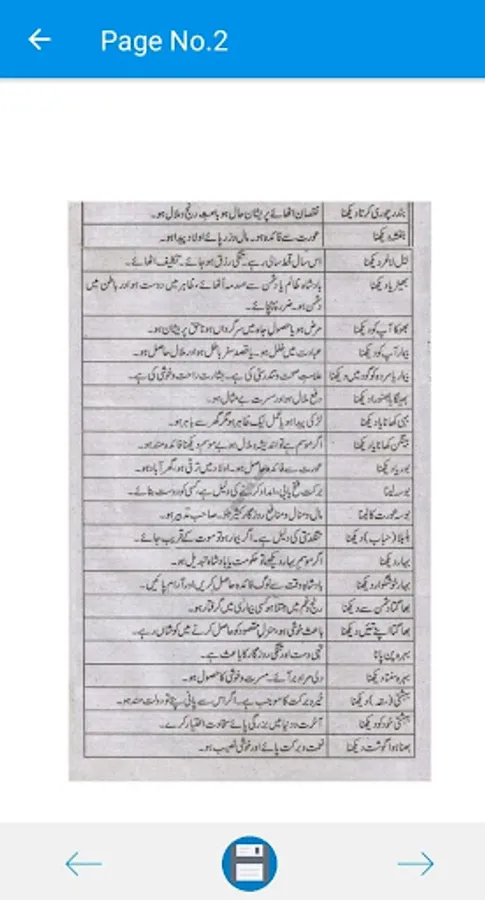 Page No.2
بندر چوری کرتا دیکھنا نقصان اٹھائے پریشان حال ہو باعث رنج و ملال ہو۔
بنفشہ دیکھنا عورت سے فائدہ ہو۔ مال و زر پائے اولاد پیدا ہو۔
بیل لاغر دیکھنا اس سال قحط سالی رہے۔ تنگی رزق ہو جائے۔ تکلیف اٹھائے۔
بھیڑیا دیکھنا بادشاہ ظالم یا دشمن سے صدمہ اٹھائے، ظاہر میں دوست ہو اور باطن میں
دشمن ہو۔ ضرر پہنچائے۔
بھوکا آپ کو دیکھنا مرض ہو یا حصول جاہ میں سرگرداں ہو ناحق پریشان ہو۔
بیمار آپ کو دیکھنا عبادت میں خلل ہو۔ یا قصد سفر باطل ہو اور ملال حاصل ہو۔
بیمار یا مردہ کو گود میں دیکھنا علامت صحت و تندرستی کی ہے۔ بشارت راحت و خوشی کی ہے۔
بھیگا یا دیکھنا رفع ملال ہو اور مسرت بے مثال ہو۔
بہی کھانا یا دیکھنا لڑکی پیدا ہو یا عمل نیک ظاہر ہو مگر گھر سے باہر ہو۔
بینگن کھانا یا دیکھنا اگر موسم ہے تو اندیشہ ملال ہو بے موسم دیکھنا فائدہ مند ہو۔
بوریا دیکھنا عورت سے فائدہ حاصل ہو۔ اولاد میں ترقی ہو، گھر آباد ہو۔
بوسہ لینا برکت فتح یابی، امداد کرنے کی دلیل ہے، کسی کو دوست بنائے۔
بوسہ عورت کا لینا مال و منال و منافع روزگار کثیر ہو۔ صاحب تدبیر ہو۔
بلبلا (حباب) دیکھنا تنگدستی کی دلیل ہے۔ اگر بیمار ہو تو موت کے قریب جائے۔
بہار دیکھنا اگر موسم بہار دیکھے تو حکومت یا بادشاہ تبدیل ہو۔
بہار خوشگوار دیکھنا بادشاہ وقت سے لوگ فائدہ حاصل کریں اور آرام پائیں۔
بھاگنا دشمن سے دیکھنا رنج و غم میں مبتلا ہو کسی بیماری میں گرفتار ہو۔
بھاگتا اپنے تئیں دیکھنا باعث خوشی ہو، منزل مقصود کو حاصل کرنے میں کوشاں رہے۔
بہرہ پن پانا تہی دست اور تنگی روزگار کا باعث ہے۔
بہرہ سننا دیکھنا دلی مراد بر آئے۔ مسرت و خوشی کا حصول ہو۔
بہشتی (سقہ) دیکھنا خیر و برکت کا موجب ہے۔ اگر اس سے پانی پئے تو دولت مند ہو۔
بہشتی خود کو دیکھنا آخرت و دنیا میں بزرگی پائے سخاوت اختیار کرے۔
بھنا ہوا گوشت دیکھنا نعمت و برکت پائے اور خوشی نصیب ہو۔